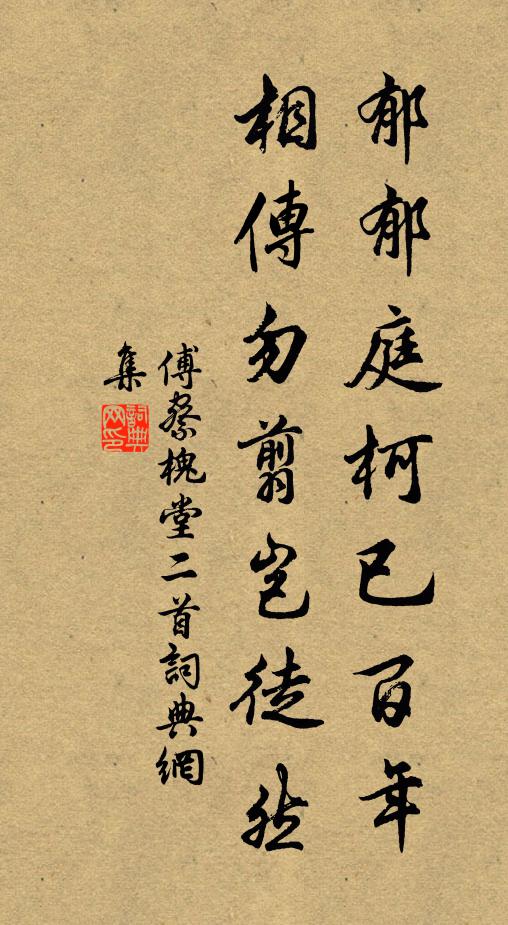 郁郁庭柯已百年
相傳勿翦豈徒然
傅察槐堂二首詞典網
集
詞典网印